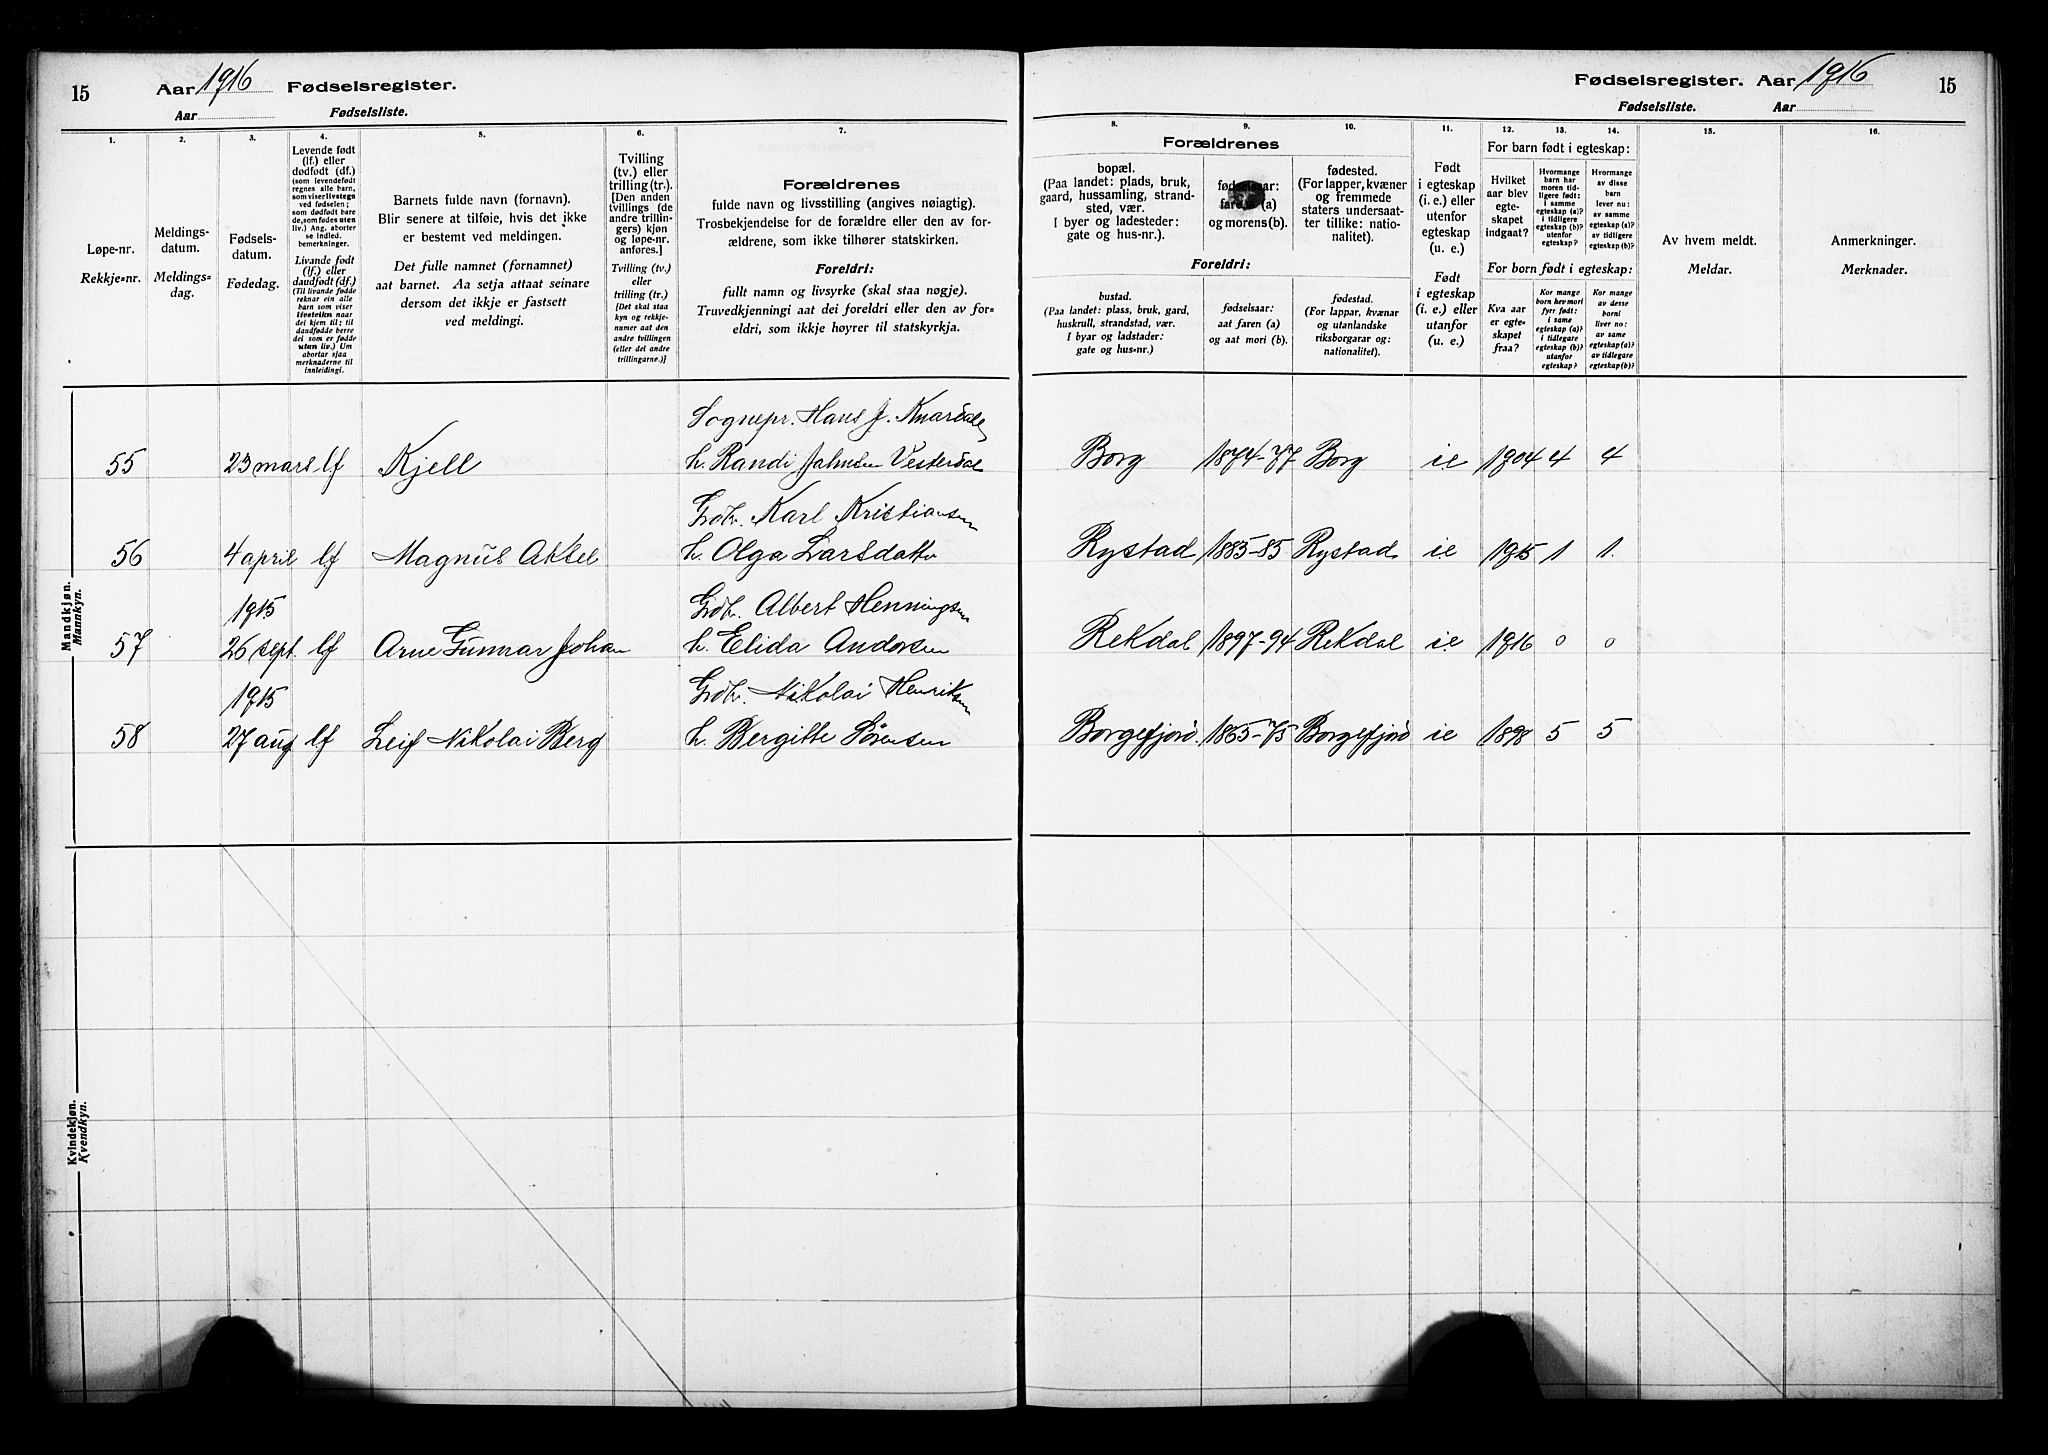 15 Aar 1916 Fødselsregister.
Aar Fødselsliste.
1. 2. 3. 4. 5. 6. 7.
Løpe-nr.
Rekkje=nr.
Meldings-
datum.
Meldings=
dag.
Fødsels-
datum.
Fødedag.
Levende født
(lf.) eller
dødfødt (df.)
(som levendefødt
regnes alle barn,
som viser livstegn
ved fødselen;
som dødfødt bare
de, som fødes uten
liv.) Ang. aborter
se indled.
bemerkninger.
Livande født
(lf.) eller
daudfødt (df.)
(Til livande fødde
reknar ein alle
barn som viser
livsteikn naar
dei kjem til; til
daudfødde berre
dei som er fødde
utan liv.) Um
abortar sjaa
merknaderne til
innleidingi.
Barnets fulde navn (fornavn).
Blir senere at tilføie, hvis det ikke
er bestemt ved meldingen.
Det fulle namnet (fornamnet)
aat barnet. Aa setja attaat seinare
dersom det ikkje er fastsett
ved meldingi.
Tvilling
(tv.) eller
trilling (tr.).
[Den anden
tvillings (de
andre trillin-
gers) kjøn
og løpe-nr.
anføres.]
Tvilling (tv.)
eller
trilling (tr.)
[Det skal staa
kyn og rekkje-
numer aat den
andre tvillingen
(eller dei andre
trillingarne.)]
Forældrenes
fulde navn og livsstilling (angives nøiagtig).
Trosbekjendelse for de forældre eller den av for-
ældrene, som ikke tilhører statskirken.
Foreldri:
fullt namn og livsyrke (skal staa nøgje).
Truvedkjenningi aat dei foreldri eller den av for-
eldri, som ikkje høyrer til statskyrkja.
Mandkjøn.
Mannkyn.
Sognepr. Hans J. Knardal
55 23 mars lf Kjell h. Randi Johnsen Vesterdal
Grdbr. Karl Kristiansen
56 4 april lf Magnus Aksel h. Olga Larsdatter
1915 Grdbr. Albert Henningsen
57 26 sept. lf Arne Gunnar Johan h. Elida Andersen
1915 Grdbr. Nikolai Henriksen
58 27 aug lf Leif Nikolai Berg h. Bergitte Sørensen
Kvindekjøn.
Kvendkyn.
Fødselsregister. Aar 1916 15
Fødselsliste. Aar
8. 9. 10. 11. 12. 13. 14. 15. 16.
Forældrenes
bopæl.
(Paa landet: plads, bruk,
gaard, hussamling, strand-
sted, vær.
I byer og ladesteder:
gate og hus-nr.).
fødselsaar:
farens (a)
og morens (b).
fødested.
(For lapper, kvæner
og fremmede
staters undersaat-
ter tillike: natio-
nalitet).
Foreldri:
bustad.
(Paa landet: plass, bruk, gard,
huskrull, strandstad, vær.
I byar og ladstader:
gate og hus=nr.)
fødselsaar:
aat faren (a)
og aat mori (b).
fødestad.
(For lappar, kvænar
og utanlandske
riksborgarar og:
nationalitet).
Født
i egteskap
(i. e.) eller
utenfor
egteskap
(u. e.)
Født
i egteskap
(i. e.) eller
utanfor
(u. e.)
For barn født i egteskap:
Hvilket
aar blev
egte-
skapet
indgaat?
Hvormange
barn har
moren tid-
ligere født:
i samme
egteskap (a)?
i tidligere
egteskap (b)?
utenfor
egteskap?
Hvormange
av disse
barn
lever nu:
av samme
egteskap (a)?
av tidligere
egteskap (b)?
For born født i egteskap:
Kva aar
er egte-
skapet
fraa?
Kor mange
born hev mori
fyrr født:
i same
egteskap (a)?
i tidlegare
egteskap (b)?
utanfor
egteskap?
Kor mange
av desse
borni
liver no:
av same
egteskap (a)?
av tidlegare
egteskap (b)?
Av hvem meldt.
Meldar.
Anmerkninger.
Merknader.
Borg 1874-77 Borg i.e 1904 4 4
Rystad 1885-85 Rystad i.e 1915 1 1.
Rekdal 1897-94 Rekdal i.e 1916 0 0
Borgefjord. 1865-75 Borgefjord i.e 1898 5 5